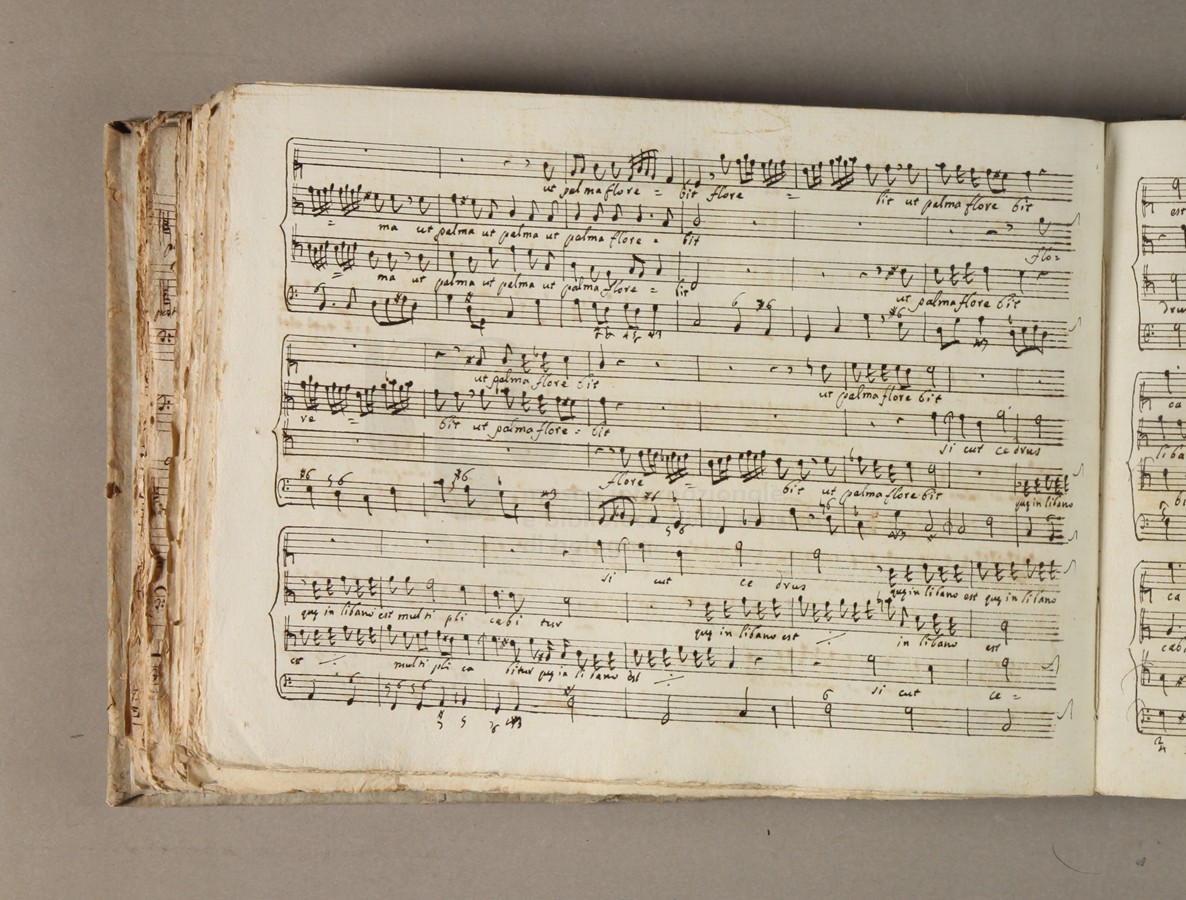 ut palma flore = bit flore = bit ut palma flore bit
= ma ut palma ut palma ut palma flore = bit flo=
= ma ut palma ut palma ut palma flore = bit ut palma flore bit
6 #6 #6
ut palma flore bit ut palma flore bit
re = bit ut palma flore = bit si cut cedrus
flore = bit ut palma flore bit quę in libano
#6 5 6 #6
si cut ce drus quę in libano est quę in libano
quę in libano est multi pli cabi tur quę in libano est in libano est
multi pli ca bitur quę in libano est si cut ce =
5 6 5 6 6